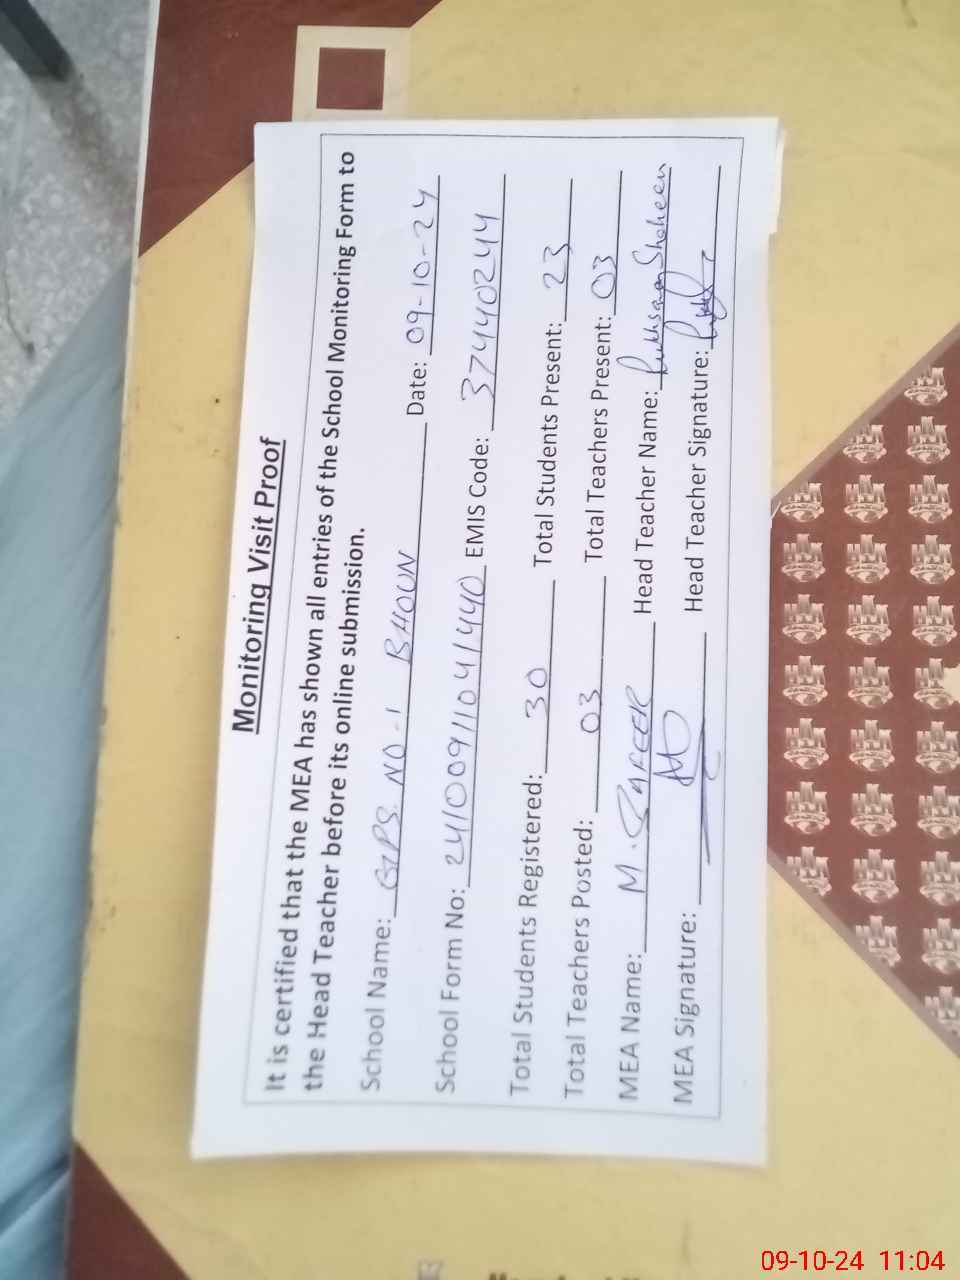 Monitoring Visit Proof
It is certified that the MEA has shown all entries of the School Monitoring Form to
the Head Teacher before its online submission.
School Name: GPS. NO-1 BHOUN Date: 09-10-24
School Form No: 2410091104/440 EMIS Code: 37440244
Total Students Registered: 30 Total Students Present: 23
Total Teachers Posted: 03 Total Teachers Present: 03
MEA Name: M. Head Teacher Name: Rukhsana Shaheen
MEA Signature: Head Teacher Signature:
09-10-24 11:04